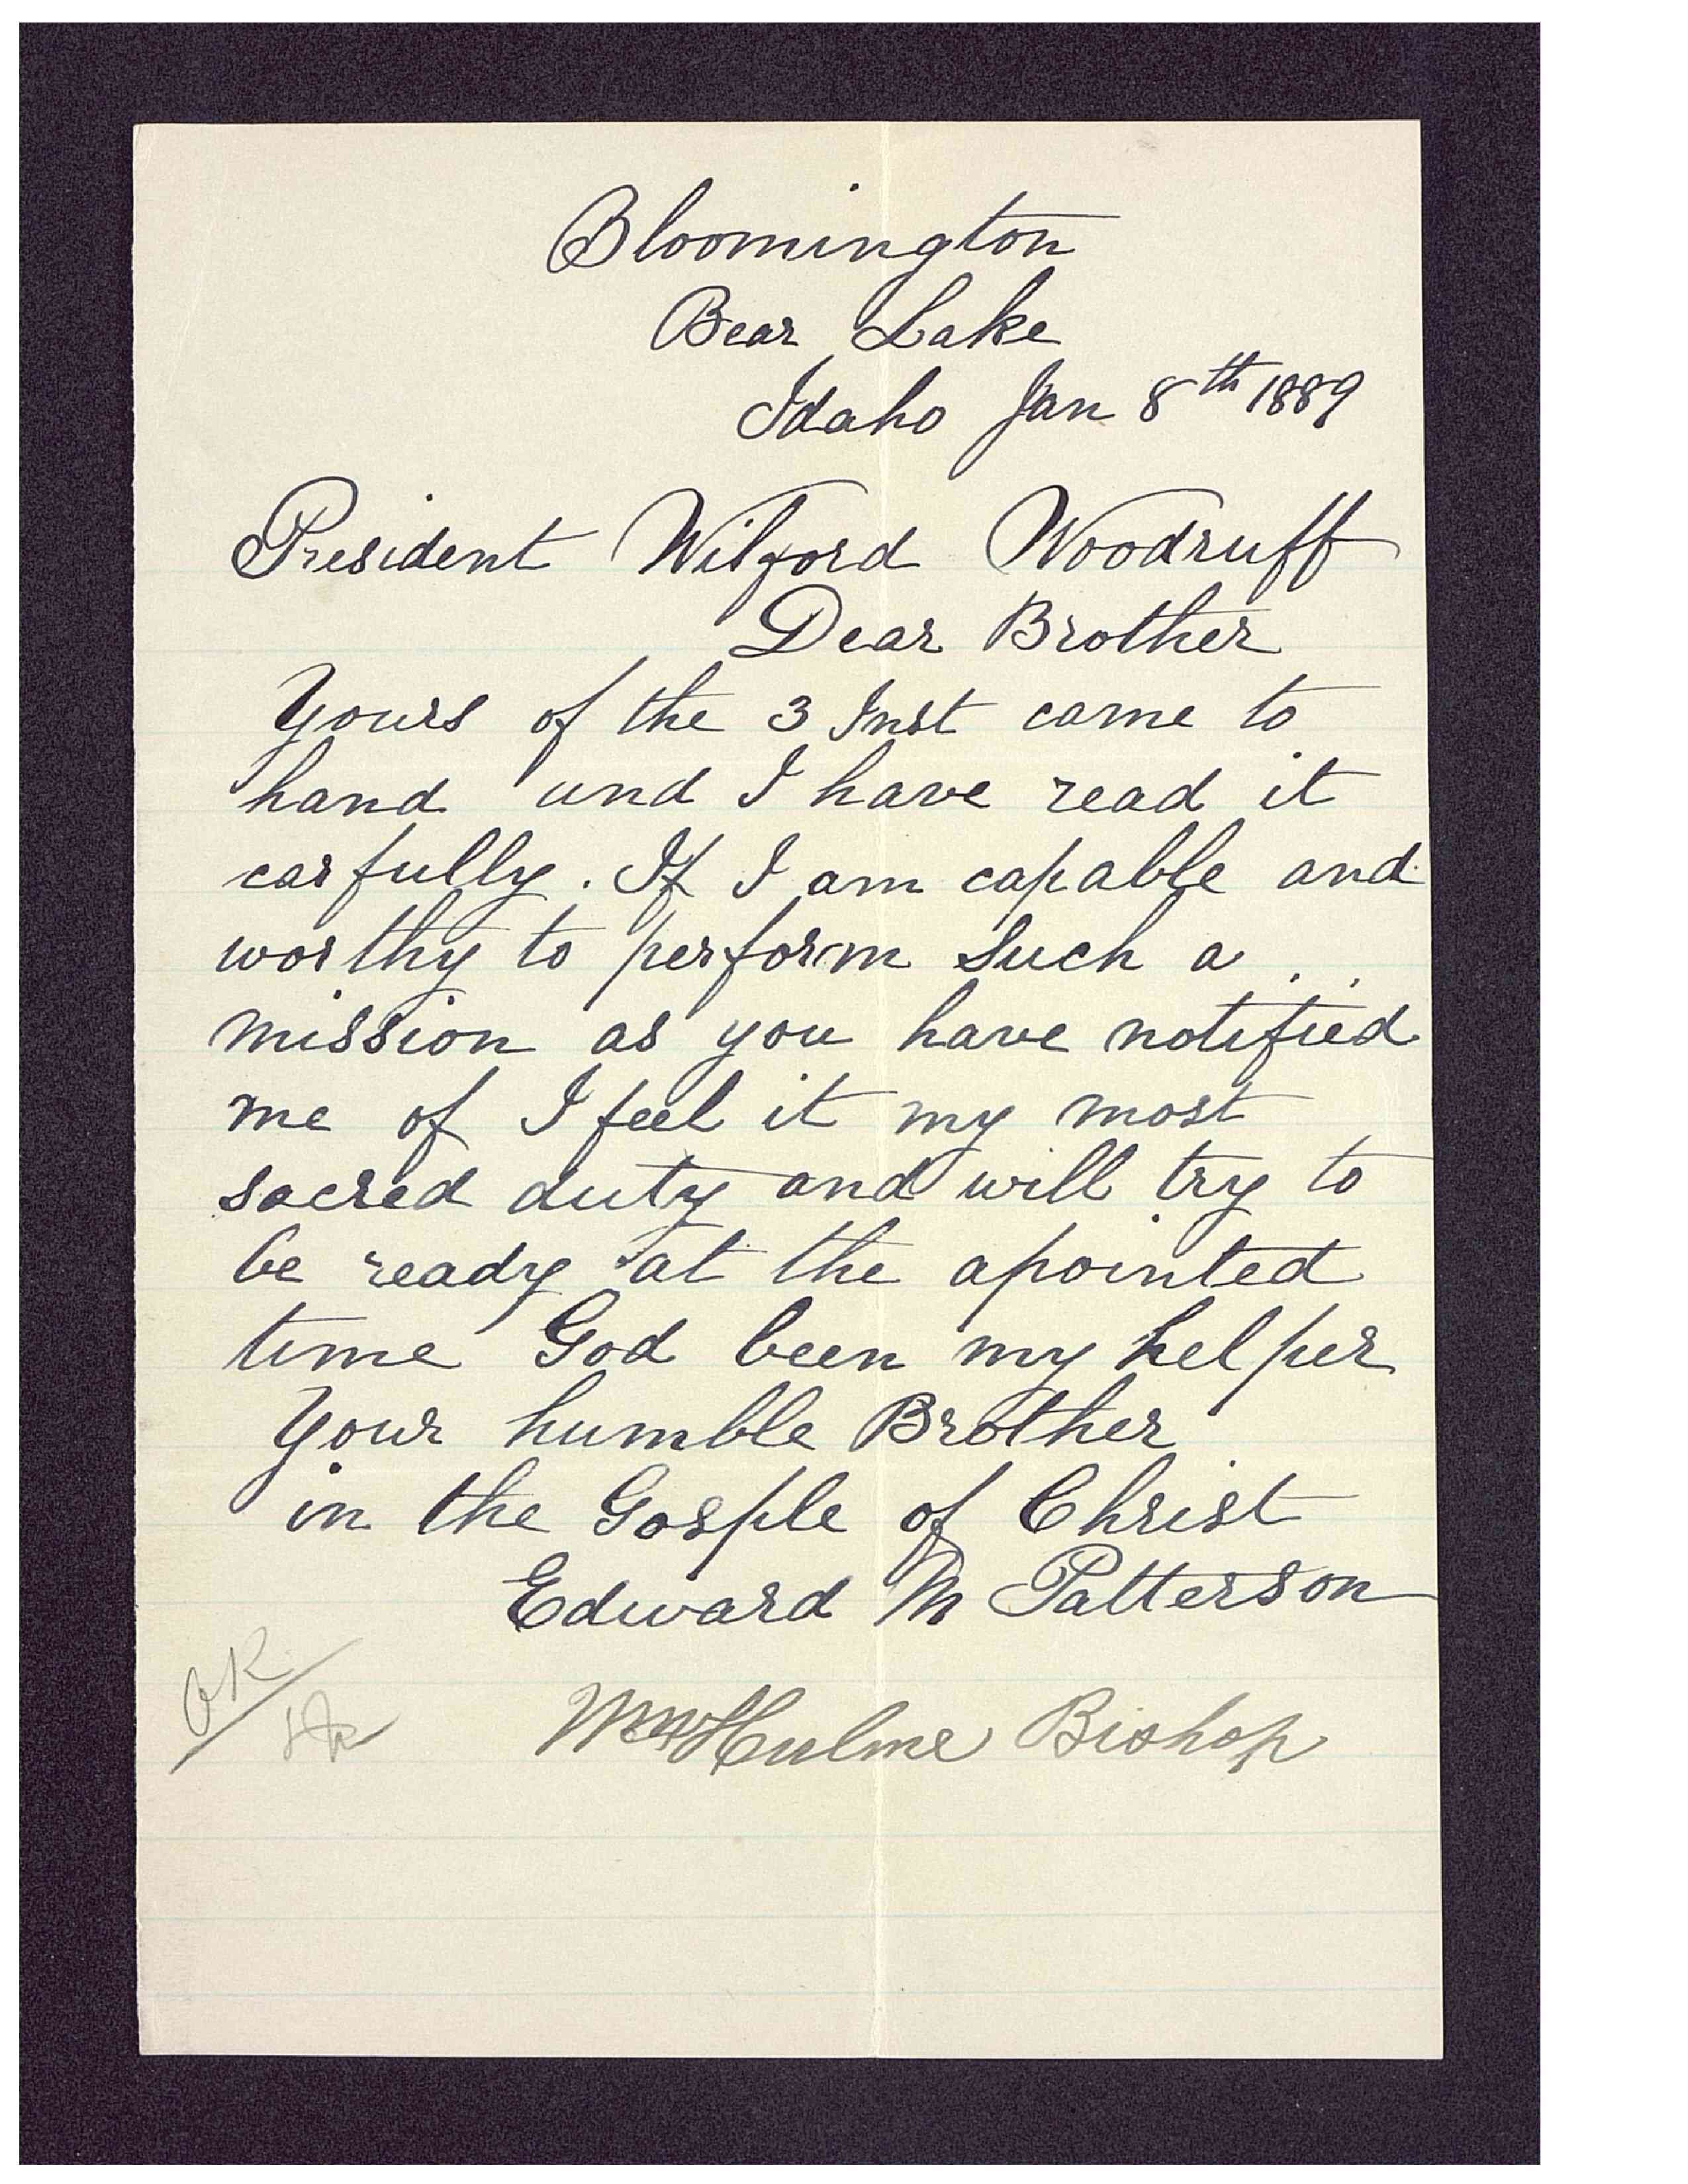 Bloomington
Bear Lake
Idaho Jan 8th 1889
President Wilford Woodruff
Dear Brother
Yours of the 3 Inst came to
hand and I have read it
carfully. If I am capable and
worthy to perform such a
mission as you have notified
me of I feel it my most
sacred duty and will try to
be ready at the apointed
time God been my helper
Your humble Brother
in the Gosple of Christ
Edward M Patterson
OK
Wm Hulme Bishop